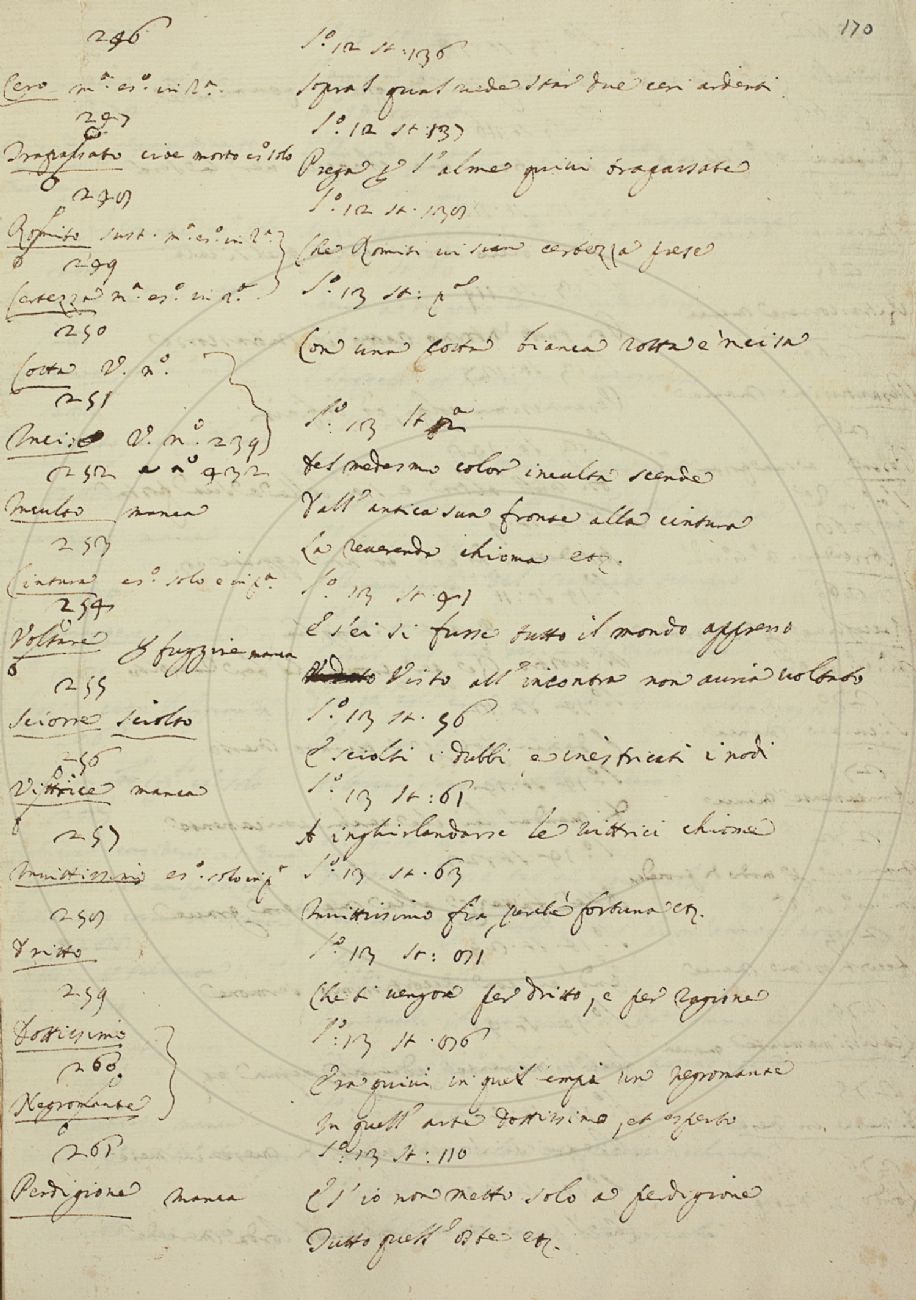 170
246
S.º 12 st. 136
Cero m.ª es.º in 2.ª
sopra l qual vide star due ceri ardenti
247
S.º 12 st. 137
Trapassato cioè morto es.º solo
Prega p l'alme quivi trapassate
248
S.º 12 st. 138
Romito sust. m.ª es.º in 2.ª
Che Romiti vi sian certezza prese
249
S.º 13 st: p.ª
Certezza m.ª es.º in 2.ª
250
Con una cotta bianca rotta e 'ncisa
Cotta V. n.º
251
S.º 13 St. 2ª
Inciso V. n.º 239
252 e nº 432
del medesmo color inculta scende
Inculto manca
Dall'antica sua fronte alla cintura
253
La reverenda chioma etc.
Cintura es.º solo e in p.ª
S.º 13 st. 41
254
E s'ei si fusse tutto il mondo appresso
Voltare p fuggire manca
Visto all'incontra non avria voltato
255
S.º 13 st. 56
Sciorre sciolto
E sciolti i dubbi, e inestricati i nodi
256
S.º 13 St: 61
Vittrice manca
A inghirlandarse le vittrici chiome
257
S.º 13 st: 63
Invittissimo es.º solo in p.ª
Invittissimo fia, perchè fortuna etc.
258
S.º 13 St: 81
Dritto
259
Che ti vengon per dritto, e per ragione
Dottissimo
S.º 13 st. 86
260
Era quivi in quel tempo un negromante
Negromante
In quell'arte dottissimo, et esperto
261
S.º 13 St: 110
Perdigione manca
E s'io non metto solo a perdigione
Tutto quell'oste etc.